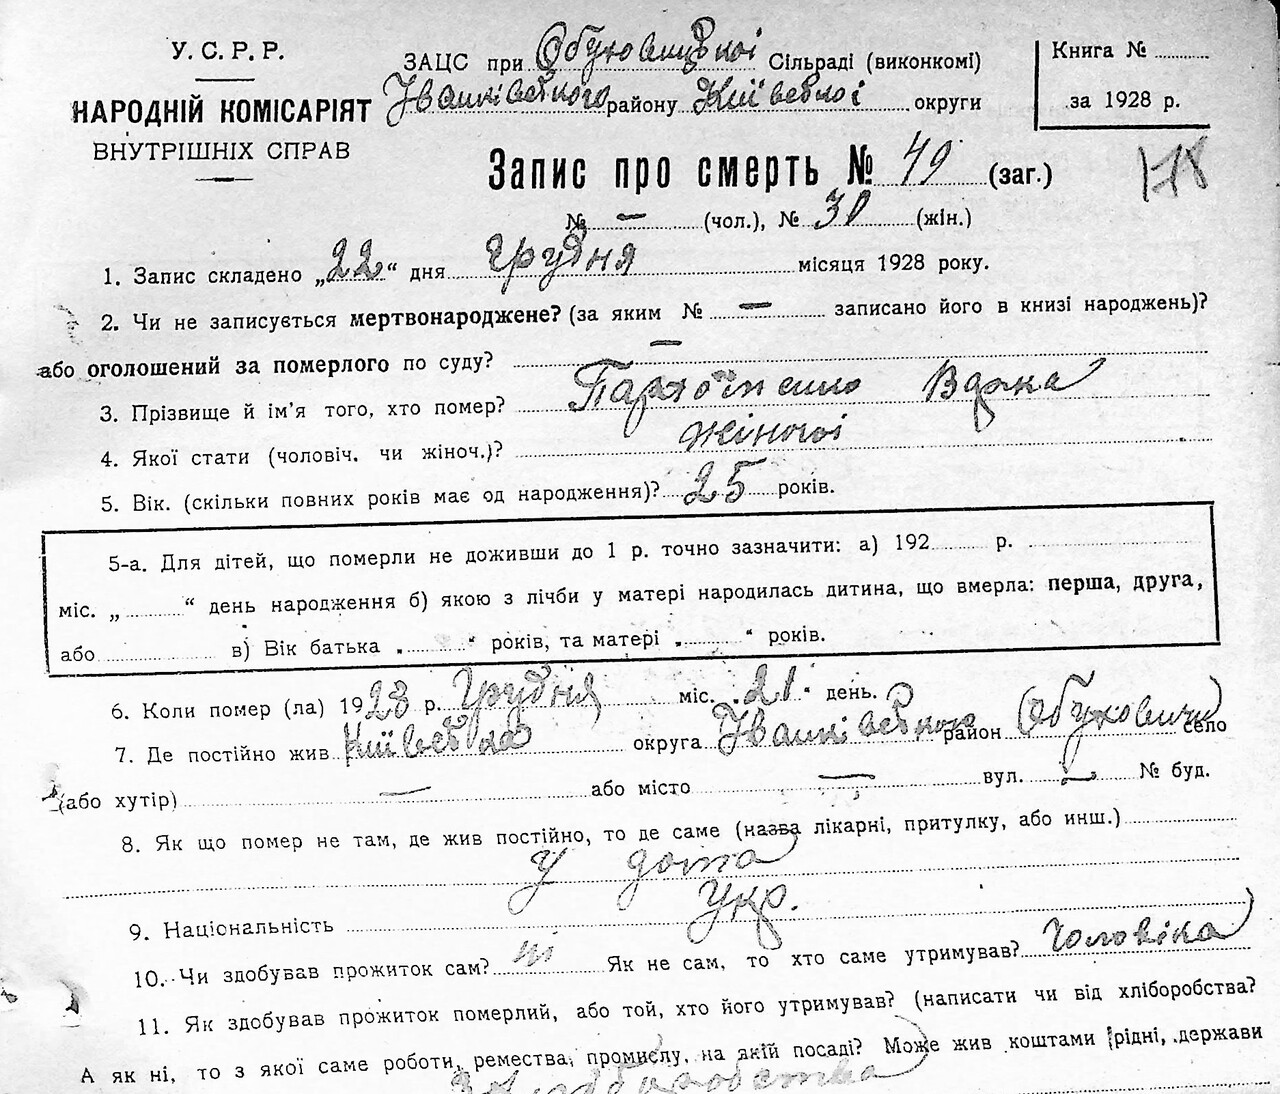 У.С.Р.Р.
НАРОДНІЙ КОМІСАРІЯТ
ВНУТРІШНІХ СПРАВ
ЗАЦС при Обуховицької Сільраді (виконкомі)
Іванківського району Київської округи
Книга №
за 1928 р.
Запис про смерть № 49 (заг.)
178
№ — (чол.), № 30 (жін.)
1. Запис складено „22“ дня Грудня місяця 1928 року.
2. Чи не записується мертвонароджене? (за яким № — записано його в книзі народжень)?
або оголошений за померлого по суду? —
3. Прізвище й ім'я того, хто помер? Пархоменко Варка
4. Якої стати (чоловіч. чи жіноч.)? жіночої
5. Вік. (скільки повних років має од народження)? 25 років.
5-а. Для дітей, що померли не доживши до 1 р. точно зазначити: а) 192 р.
міс. „ “ день народження б) якою з лічби у матері народилась дитина, що вмерла: перша, друга,
або в) Вік батька „ “ років, та матері „ “ років.
6. Коли помер (ла) 1928 р. Грудня міс. „21“ день.
7. Де постійно жив Київська округа Іванківського район Обуховичи село
(або хутір) — або місто — вул. — № буд.
8. Як що помер не там, де жив постійно, то де саме (назва лікарні, притулку, або инш.)
У дома
9. Національність Укр.
10. Чи здобував прожиток сам? ні Як не сам, то хто саме утримував? Чоловіка
11. Як здобував прожиток померлий, або той, хто його утримував? (написати чи від хліборобства?
А як ні, то з якої саме роботи, ремества, промислу, на якій посаді? Може жив коштами рідні, держави